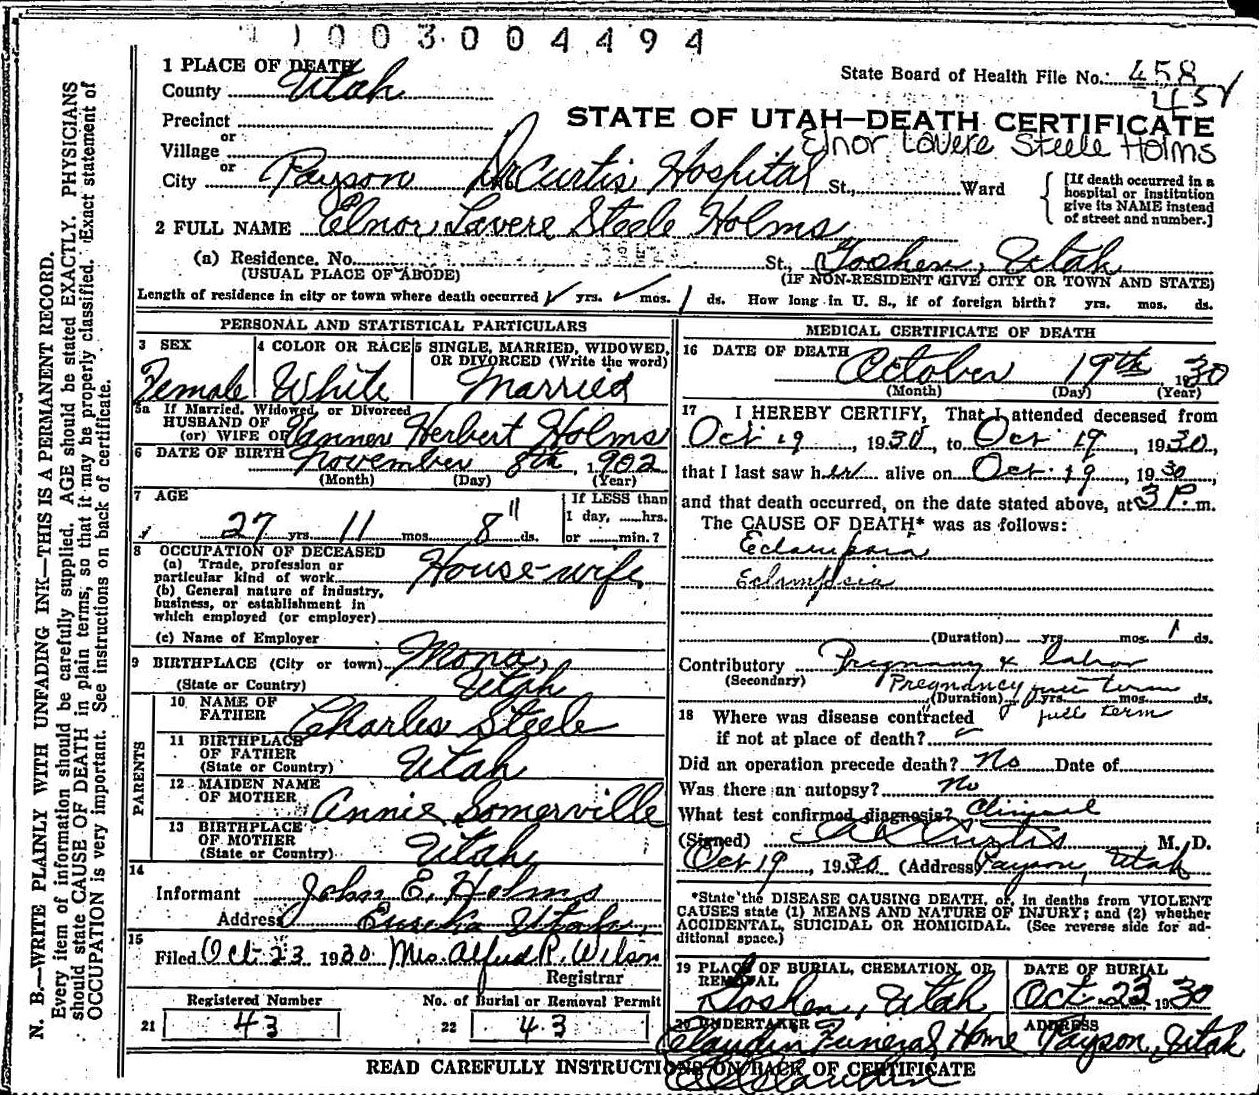 1003004494
1 PLACE OF DEATH
County Utah
State Board of Health File No. 458
458
Precinct
or
Village
or
City Payson Dr Curtis Hospital St., Ward
STATE OF UTAH—DEATH CERTIFICATE
Elnor Lavere Steele Holms
[If death occurred in a
hospital or institution
give its NAME instead
of street and number.]
2 FULL NAME Elnor Lavere Steele Holms
(a) Residence. No. St., Goshen, Utah
(USUAL PLACE OF ABODE) (IF NON-RESIDENT GIVE CITY OR TOWN AND STATE)
Length of residence in city or town where death occurred yrs. mos. 1 ds. How long in U. S., if of foreign birth? yrs. mos. ds.
PERSONAL AND STATISTICAL PARTICULARS
3 SEX 4 COLOR OR RACE 5 SINGLE, MARRIED, WIDOWED,
OR DIVORCED (Write the word)
Female White Married
5a If Married, Widowed, or Divorced
HUSBAND OF
(or) WIFE OF Herbert Holms
6 DATE OF BIRTH November 8th, 1902
(Month) (Day) (Year)
7 AGE If LESS than
1 day, ......hrs.
27 yrs. 11 mos. 8 11 ds. or ......min.?
8 OCCUPATION OF DECEASED
(a) Trade, profession or
particular kind of work House-wife
(b) General nature of industry,
business, or establishment in
which employed (or employer)
(c) Name of Employer
9 BIRTHPLACE (City or town) Mona,
(State or Country) Utah
PARENTS
10 NAME OF
FATHER Charles Steele
11 BIRTHPLACE
OF FATHER
(State or Country) Utah
12 MAIDEN NAME
OF MOTHER Annie Somerville
13 BIRTHPLACE
OF MOTHER
(State or Country) Utah
14
Informant John E. Holms
Address Eureka Utah
15
Filed Oct 23 1930 Mrs. Alfred P. Wilson
Registrar
Registered Number No. of Burial or Removal Permit
21 43 22 43
MEDICAL CERTIFICATE OF DEATH
16 DATE OF DEATH October 19th 1930
(Month) (Day) (Year)
17 I HEREBY CERTIFY, That I attended deceased from
Oct 19, 1930, to Oct 19, 1930,
that I last saw her alive on Oct 19, 1930,
and that death occurred, on the date stated above, at 3 P. m.
The CAUSE OF DEATH* was as follows:
Eclampsia
Eclimpsia
(Duration) yrs. mos. 1 ds.
Contributory Pregnancy & labor
(Secondary) Pregnancy full term
(Duration) yrs. mos. ds.
full term
18 Where was disease contracted
if not at place of death?
Did an operation precede death? No Date of
Was there an autopsy? No
What test confirmed diagnosis? Clinical
(Signed) Curtis M. D.
Oct 19, 1930 (Address) Payson, Utah
*State the DISEASE CAUSING DEATH, or, in deaths from VIOLENT
CAUSES state (1) MEANS AND NATURE OF INJURY; and (2) whether
ACCIDENTAL, SUICIDAL OR HOMICIDAL. (See reverse side for ad-
ditional space.)
19 PLACE OF BURIAL, CREMATION, OR
REMOVAL DATE OF BURIAL
Goshen, Utah Oct. 23, 1930
20 UNDERTAKER ADDRESS
Claudin Funeral Home Payson, Utah
Claudin
READ CAREFULLY INSTRUCTIONS ON BACK OF CERTIFICATE
N. B.—WRITE PLAINLY WITH UNFADING INK—THIS IS A PERMANENT RECORD.
Every item of information should be carefully supplied. AGE should be stated EXACTLY. PHYSICIANS
should state CAUSE OF DEATH in plain terms, so that it may be properly classified. Exact statement of
OCCUPATION is very important. See instructions on back of certificate.